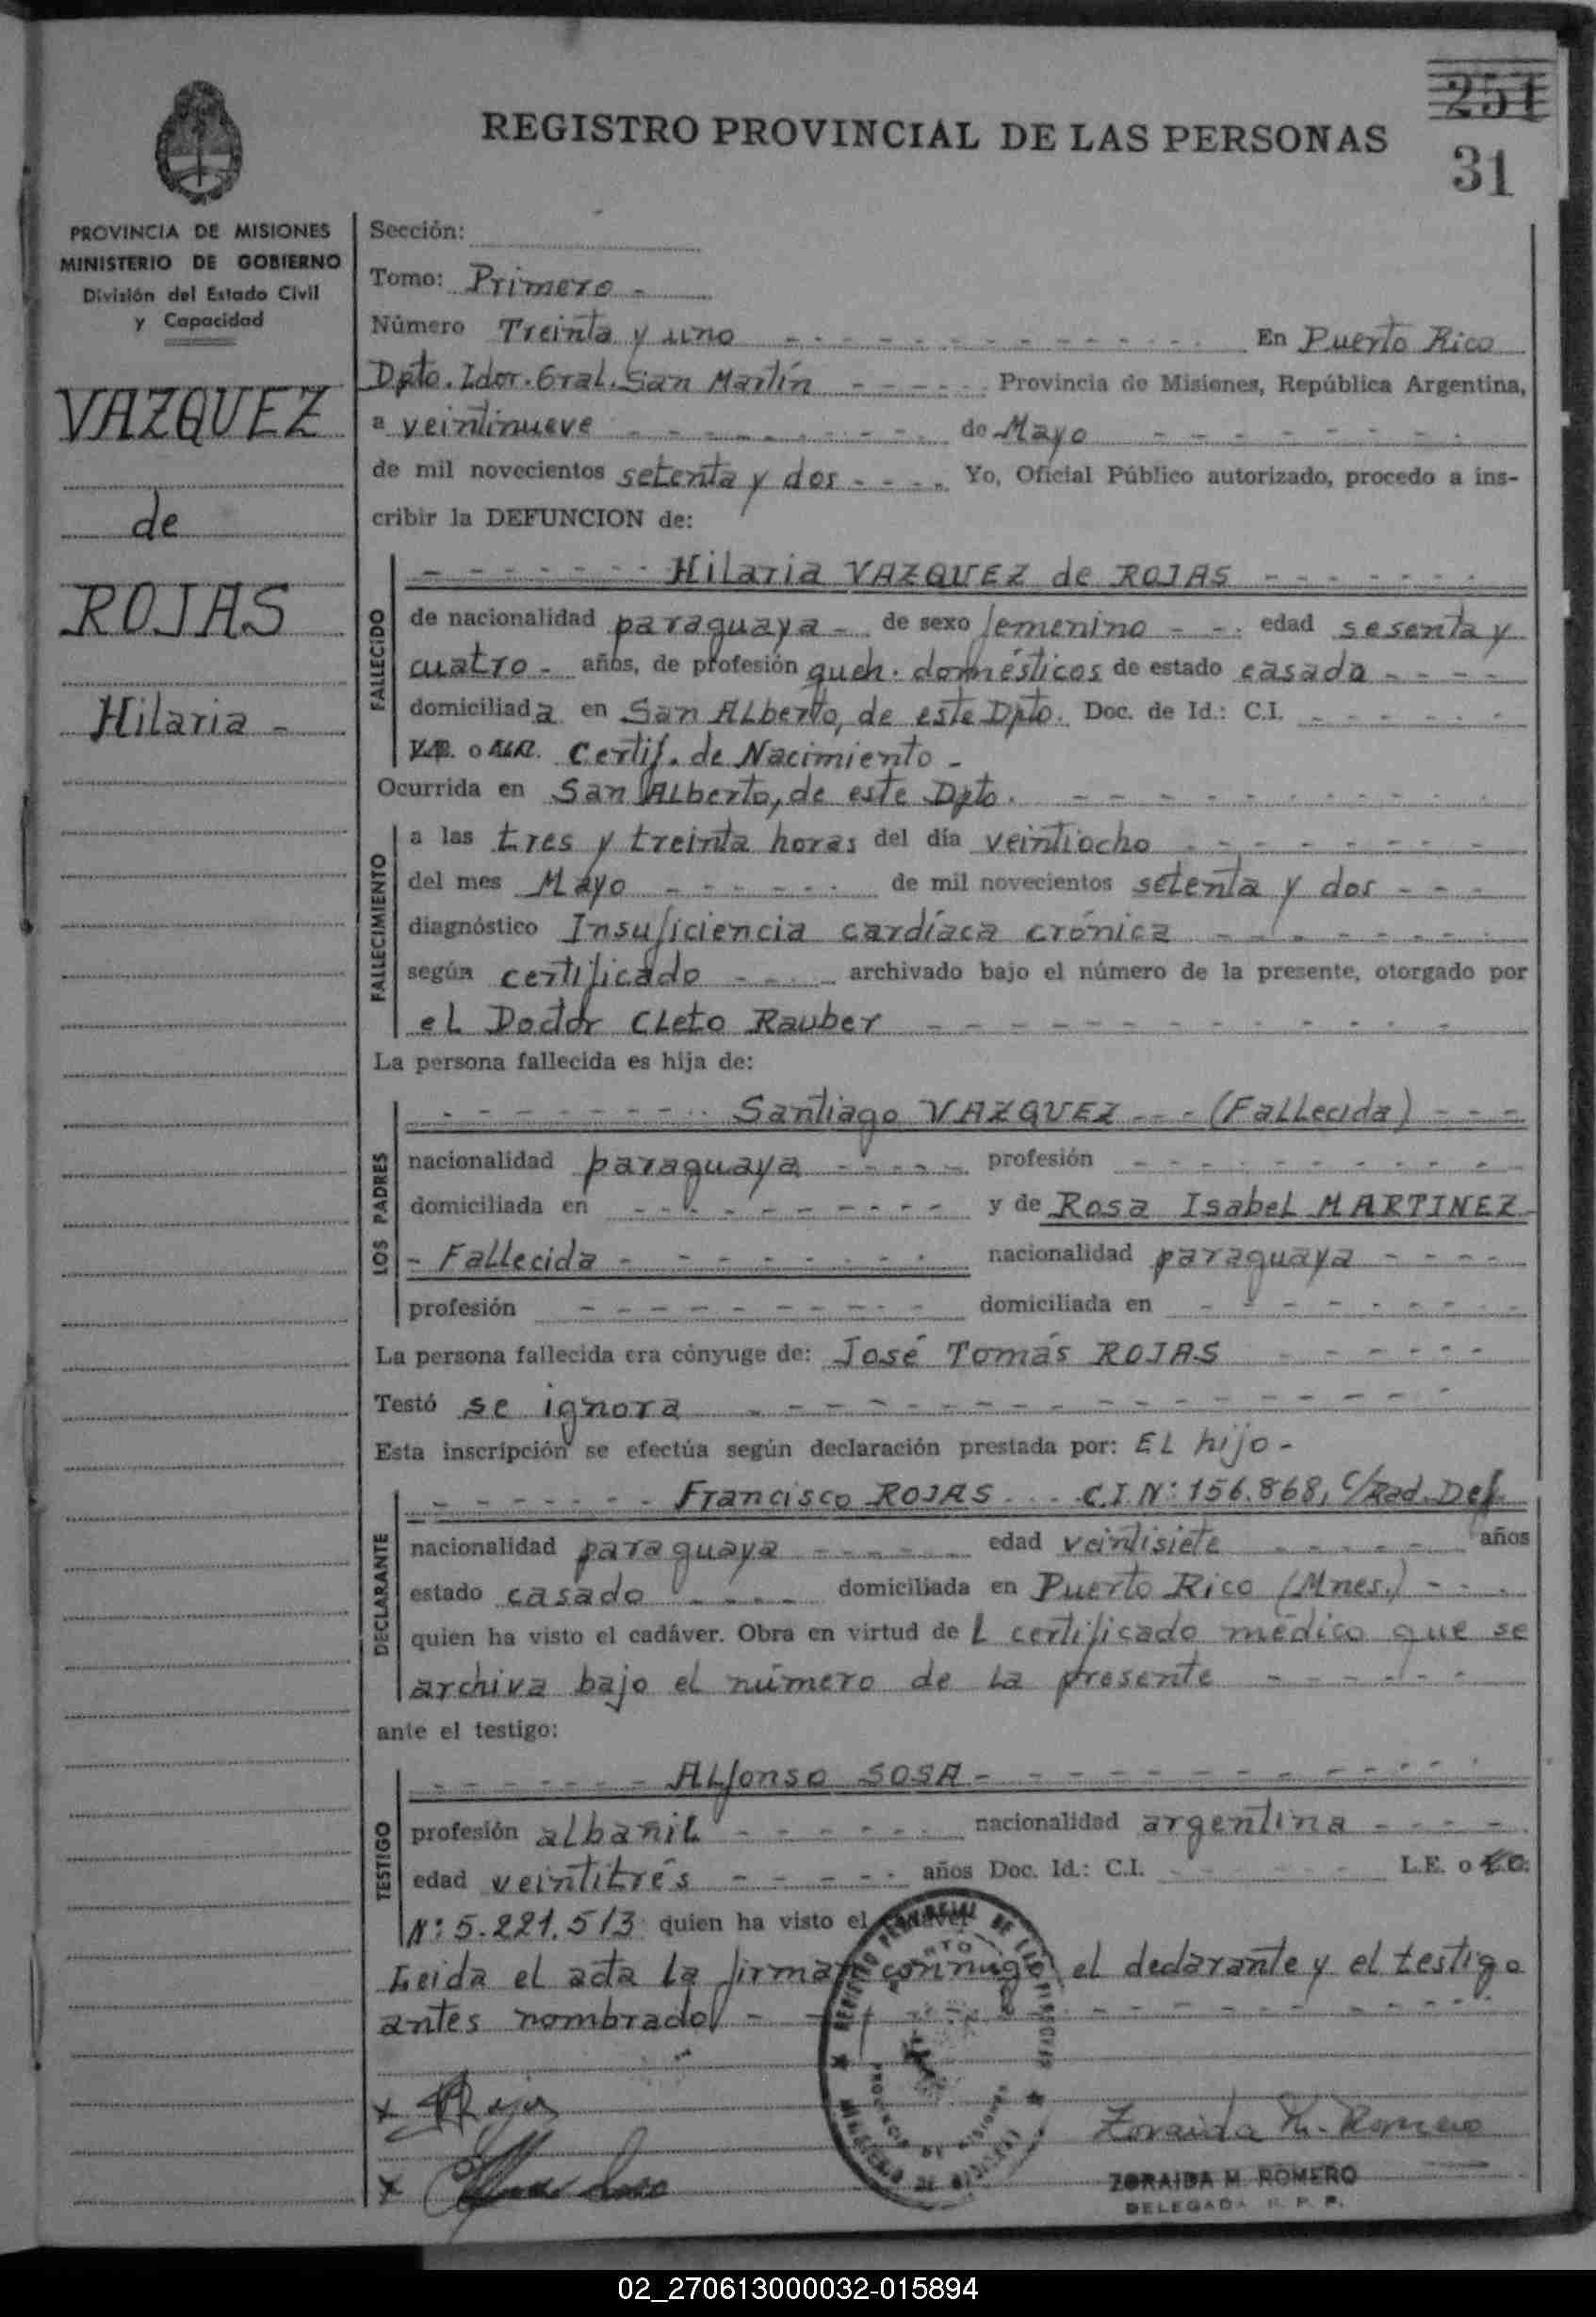 251
REGISTRO PROVINCIAL DE LAS PERSONAS
31
PROVINCIA DE MISIONES
MINISTERIO DE GOBIERNO
División del Estado Civil
y Capacidad
VAZQUEZ
de
ROJAS
Hilaria -
Sección:
Tomo: Primero -
Número Treinta y uno - - - En Puerto Rico
Dpto. Ldor. Gral. San Martín - - - Provincia de Misiones, República Argentina,
a veintinueve - - - de Mayo - - -
de mil novecientos setenta y dos - - - Yo, Oficial Público autorizado, procedo a ins-
cribir la DEFUNCION de:
FALLECIDO
- - - Hilaria VAZQUEZ de ROJAS - - -
de nacionalidad paraguaya - de sexo femenino - - edad sesenta y
cuatro - años, de profesión queh. domésticos de estado casada - - -
domiciliada en San Alberto, de este Dpto. Doc. de Id.: C.I. - - -
o Certif. de Nacimiento -
Ocurrida en San Alberto, de este Dpto. - - -
FALLECIMIENTO
a las tres y treinta horas del día veintiocho - - -
del mes Mayo - - - de mil novecientos setenta y dos - - -
diagnóstico Insuficiencia cardíaca crónica - - -
según certificado - - - archivado bajo el número de la presente, otorgado por
el Doctor Cleto Rauber - - -
La persona fallecida es hija de:
LOS PADRES
- - - Santiago VAZQUEZ - - - (Fallecida) - - -
nacionalidad paraguaya - - - profesión - - -
domiciliada en - - - y de Rosa Isabel MARTINEZ -
- Fallecida - - - nacionalidad paraguaya - - -
profesión - - - domiciliada en - - -
La persona fallecida era cónyuge de: José Tomás ROJAS - - -
Testó se ignora - - -
Esta inscripción se efectúa según declaración prestada por: El hijo -
DECLARANTE
- - - Francisco ROJAS - - - C.I.Nº 156.868, c/Rad. Def.
nacionalidad paraguaya - - - edad veintisiete - - - años
estado casado - - - domiciliada en Puerto Rico (Mnes.) - - -
quien ha visto el cadáver. Obra en virtud de l certificado médico que se
archiva bajo el número de la presente - - -
ante el testigo:
TESTIGO
- - - Alfonso SOSA - - -
profesión albañil - - - nacionalidad argentina - - -
edad veintitrés - - - años Doc. Id.: C.I. - - - L.E. o
Nº 5.221.513 quien ha visto el cadáver
Leida el acta la firman conmigo el declarante y el testigo
antes nombrado/ - - -
x Rojas
x
Zoraida M. Romero
ZORAIDA M. ROMERO
DELEGADA R. P. P.
02_270613000032-015894